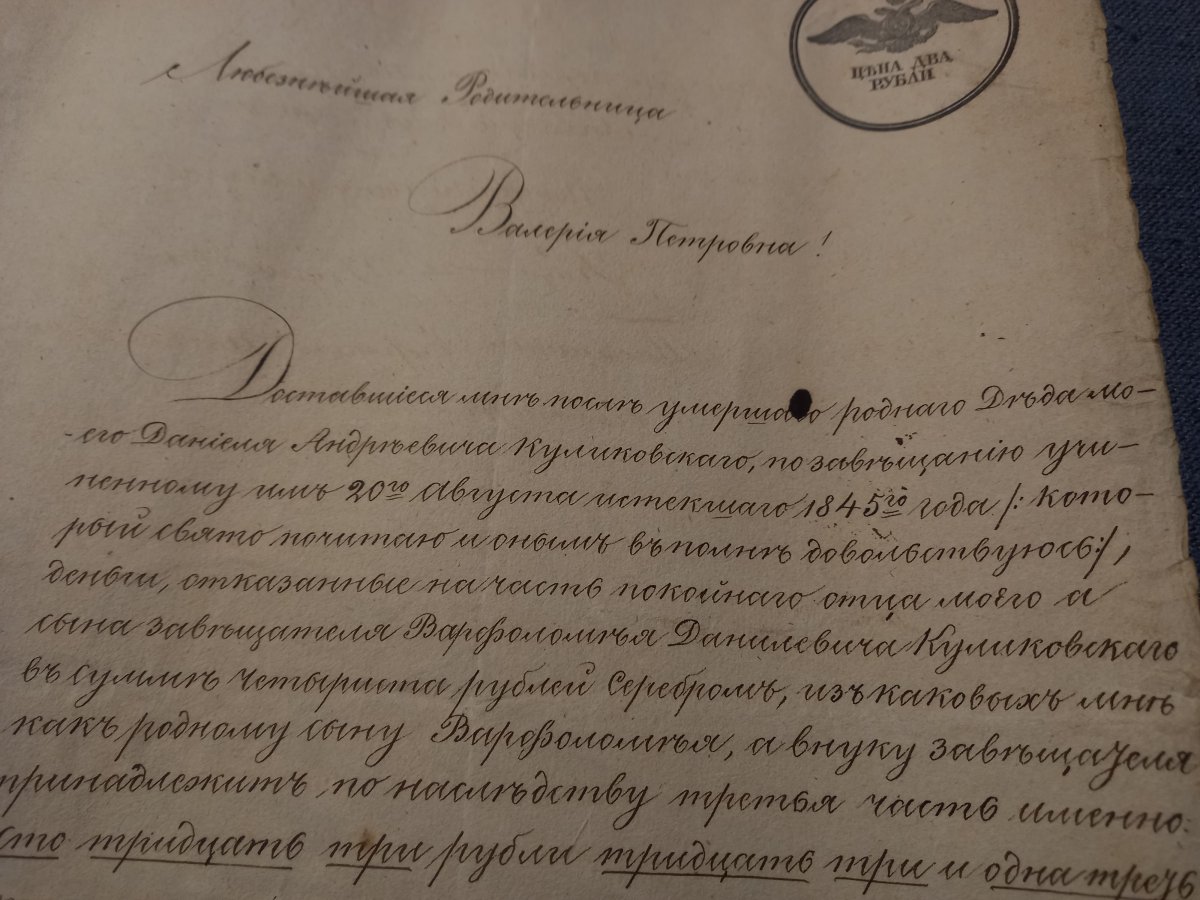 ЦѢНА ДВА
РУБЛИ
Любезнѣйшая Родительница
Валерія Петровна!
Доставшіеся мнѣ послѣ умершаго роднаго Дѣда мо-
-его Даніеля Андрѣевича Куликовскаго, по завѣщанію учи-
ненному имъ 20го Августа истекшаго 1845го года /: кото-
рый свято почитаю и онымъ въ полнѣ довольствуюсь:/,
деньги, отказанные на часть покойнаго отца моего а
сына завѣщателя Варѳоломѣя Данилевича Куликовскаго
въ суммѣ четыриста рублей Серебромъ, изъ каковыхъ мнѣ
какъ родному сыну Варѳоломѣя, а внуку завѣщателя
принадлежитъ по наслѣдству третья часть именно:
сто тридцать три рубли тридцать три и одна треть